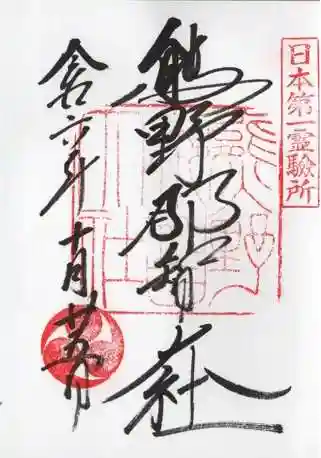 日本第一霊驗所
熊野那智大社
令和六年十月廿五日